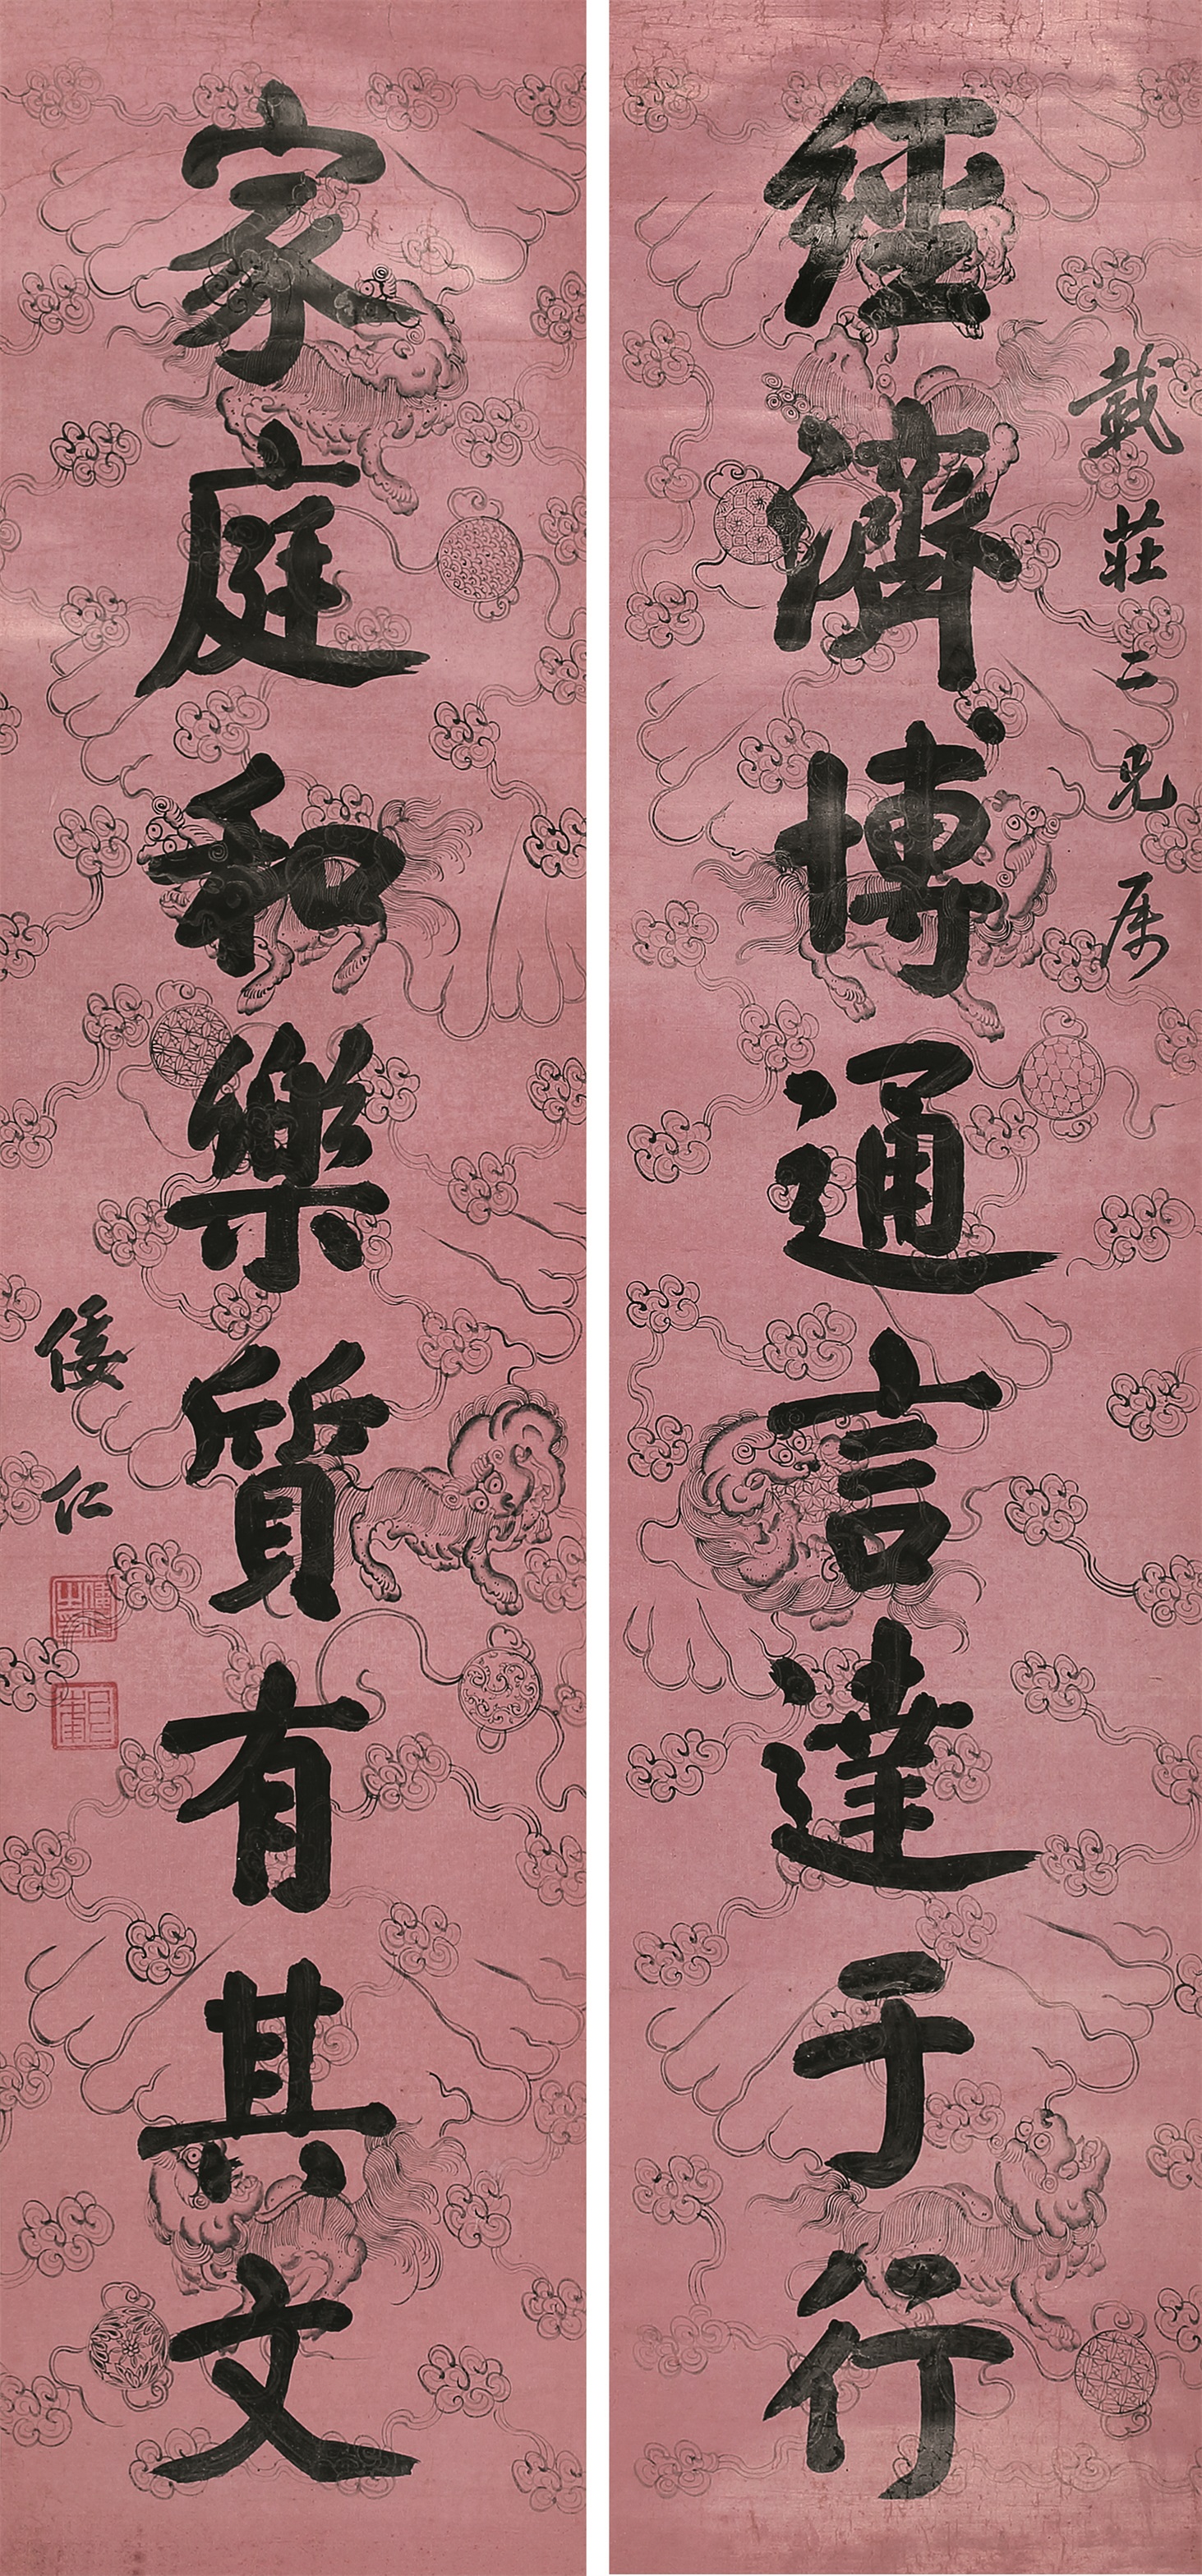 戴莊二兄属
經濟博通言達于行
家庭和樂質有其文
倭仁